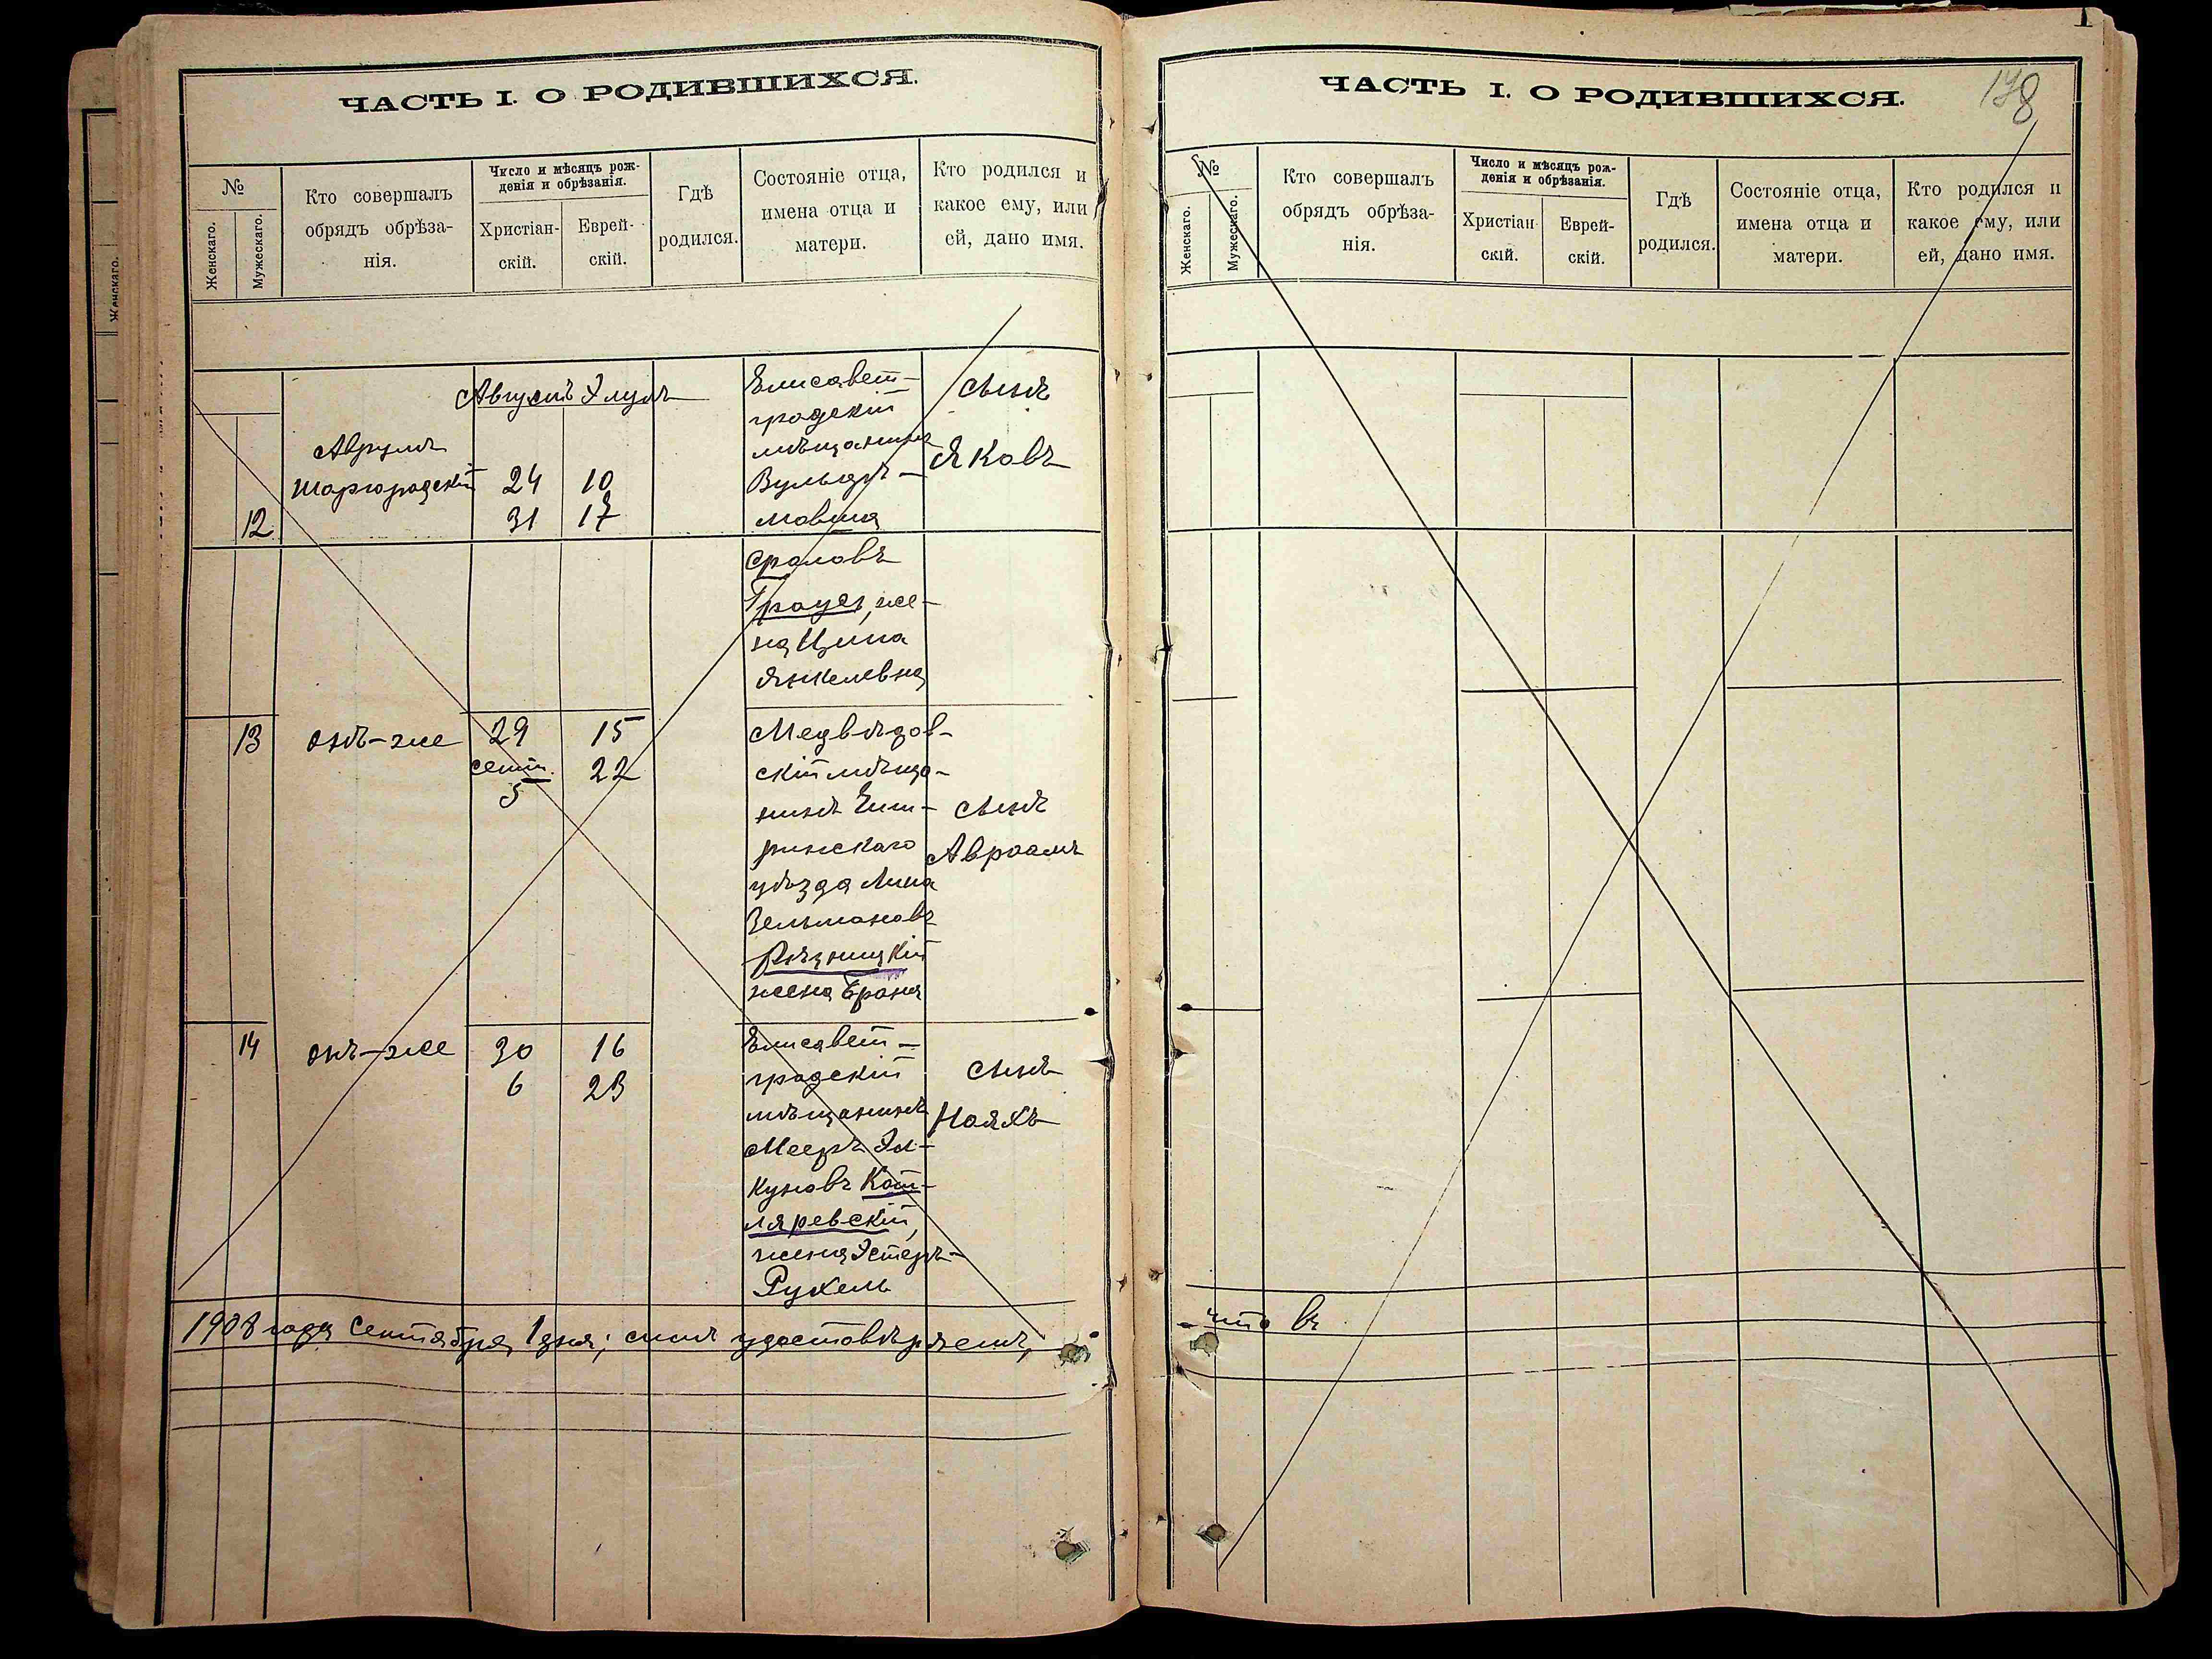 ЧАСТЬ I. О РОДИВШИХСЯ.
№
Женскаго.
Мужескаго.
Кто совершалъ
обрядъ обрѣза-
нія.
Число и мѣсяцъ рож-
денія и обрѣзанія.
Христіан-
скій.
Еврей-
скій.
Гдѣ
родился.
Состояніе отца,
имена отца и
матери.
Кто родился и
какое ему, или
ей, дано имя.
Августъ Элулъ
12
Аврумъ
Шаргородскій
24 10
31 17
Елисавет-
градскій
мѣщанинъ
Вульфъ-
Мовша
Сроловъ
же-
на Ципа
Янкелевна
сынъ
Яковъ
13
онъ-же
29 15
сент. 22
5
Медвѣдов-
скій мѣща-
нинъ Чиги-
ринскаго
уѣзда Липа
Зельмановъ
Рѣзницкій
жена Браня
сынъ
Авраамъ
14
онъ-же
30 16
6 23
Елисавет-
градскій
мѣщанинъ
Мееръ Эл-
куновъ Кот-
ляревскій,
жена Эстеръ-
Рухель
сынъ
Нояхъ
1908 года Сентября 1 дня; симъ удостовѣряемъ,
ЧАСТЬ I. О РОДИВШИХСЯ.
178
№
Женскаго.
Мужескаго.
Кто совершалъ
обрядъ обрѣза-
нія.
Число и мѣсяцъ рож-
денія и обрѣзанія.
Христіан-
скій.
Еврей-
скій.
Гдѣ
родился.
Состояніе отца,
имена отца и
матери.
Кто родился и
какое ему, или
ей, дано имя.
что въ